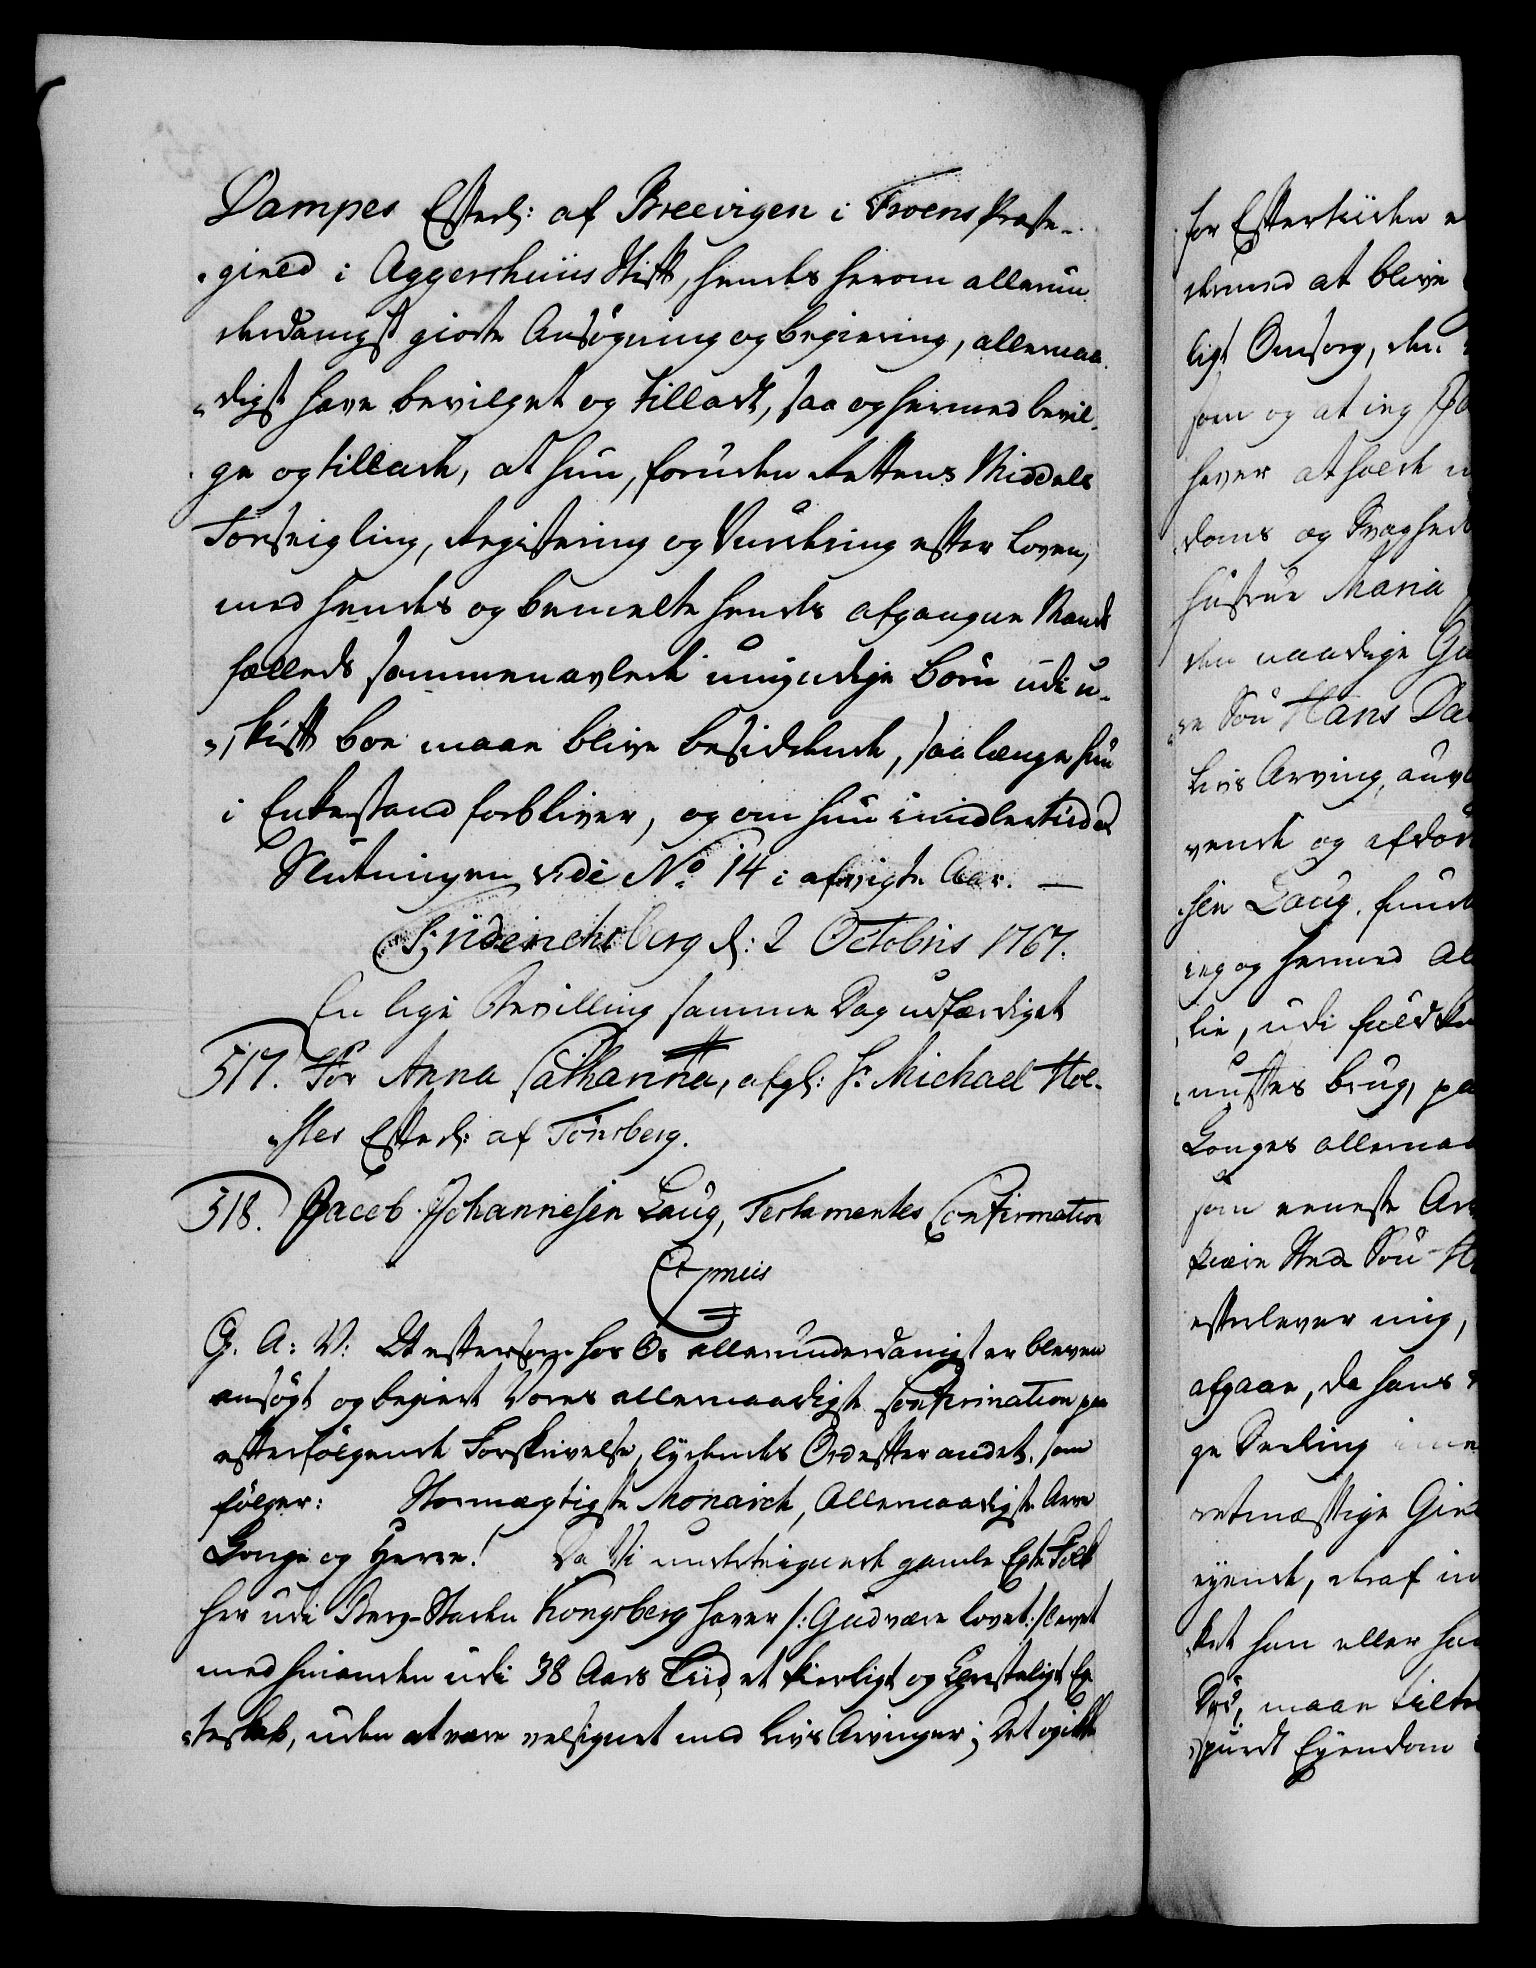 Dampes Efterl: af Breevigen i Froens Præste-
gield i Aggershuus Stift, hendes herom allerun
derdanigst giorte Ansøgning og begiering, allernaa
digst have bevilget og tilladt, saa og hermed bevil,
ge og tillade, at hun, foruden Rettens Middels
Forseigling, Registering og Vurdering efter Loven,
med hendes og bemelte hendes afgangne Mands
fælleds sammenavlede umyndige børn udi u-
skift boe maae blive besiddende, saa længe hun
i Enkestand forbliver, og om hun imidlertid
Slutningen vide No. 14 i afvigte Aar. —
Friderichsberg d: 2 Octobris 1767.
En lige Bevilling samme Dag udfærdiget
517. For Anna Cathanna, afgl: Sr Michael Hol-
ster Efterl: af Tønsberg.
518. Jacob Johannesen Laug, Testamentes Confirmation
Expneis
G. A: V: At eftersom hos Os allerunderdanigst er bleven
ansøgt og begiert Vores allernaadigste Confirmation paa
efterfølgende Forskrivelse, lydendes Ord efter andet, som
følger: Stormægtigste Monarch, Allernaadigste Arve
Konge og Herre! Da Vi undertegnede gamle Egte Folk
her udi Berg-Staden Kongsberg haver /: Gud være lovet :/ levet
med hinanden udi 38 Aars Tiid et kierligt og Christeligt Eg-
teskab, uden at være velsignet med Livs Arvinger; Det og ikke
for Eftertiiden
derved at blive
ligt Omsorg, den
som og at ieg
haver at holde
doms og Svaghed
hustrue Maria
den naadige
re Søn Hans
Livs Arving,
vende og afdøde
sen Laug,
ieg og hermed
lie, udi fuldkom
nuftes brug, paa
Konges allernaa
som eeneste
kiære Sted Søn
efterlever mig,
afgaae, da hans
ge Deeling
retmæssige
eyende, deraf
ket han eller
Død, maae
spurdt Eyendom